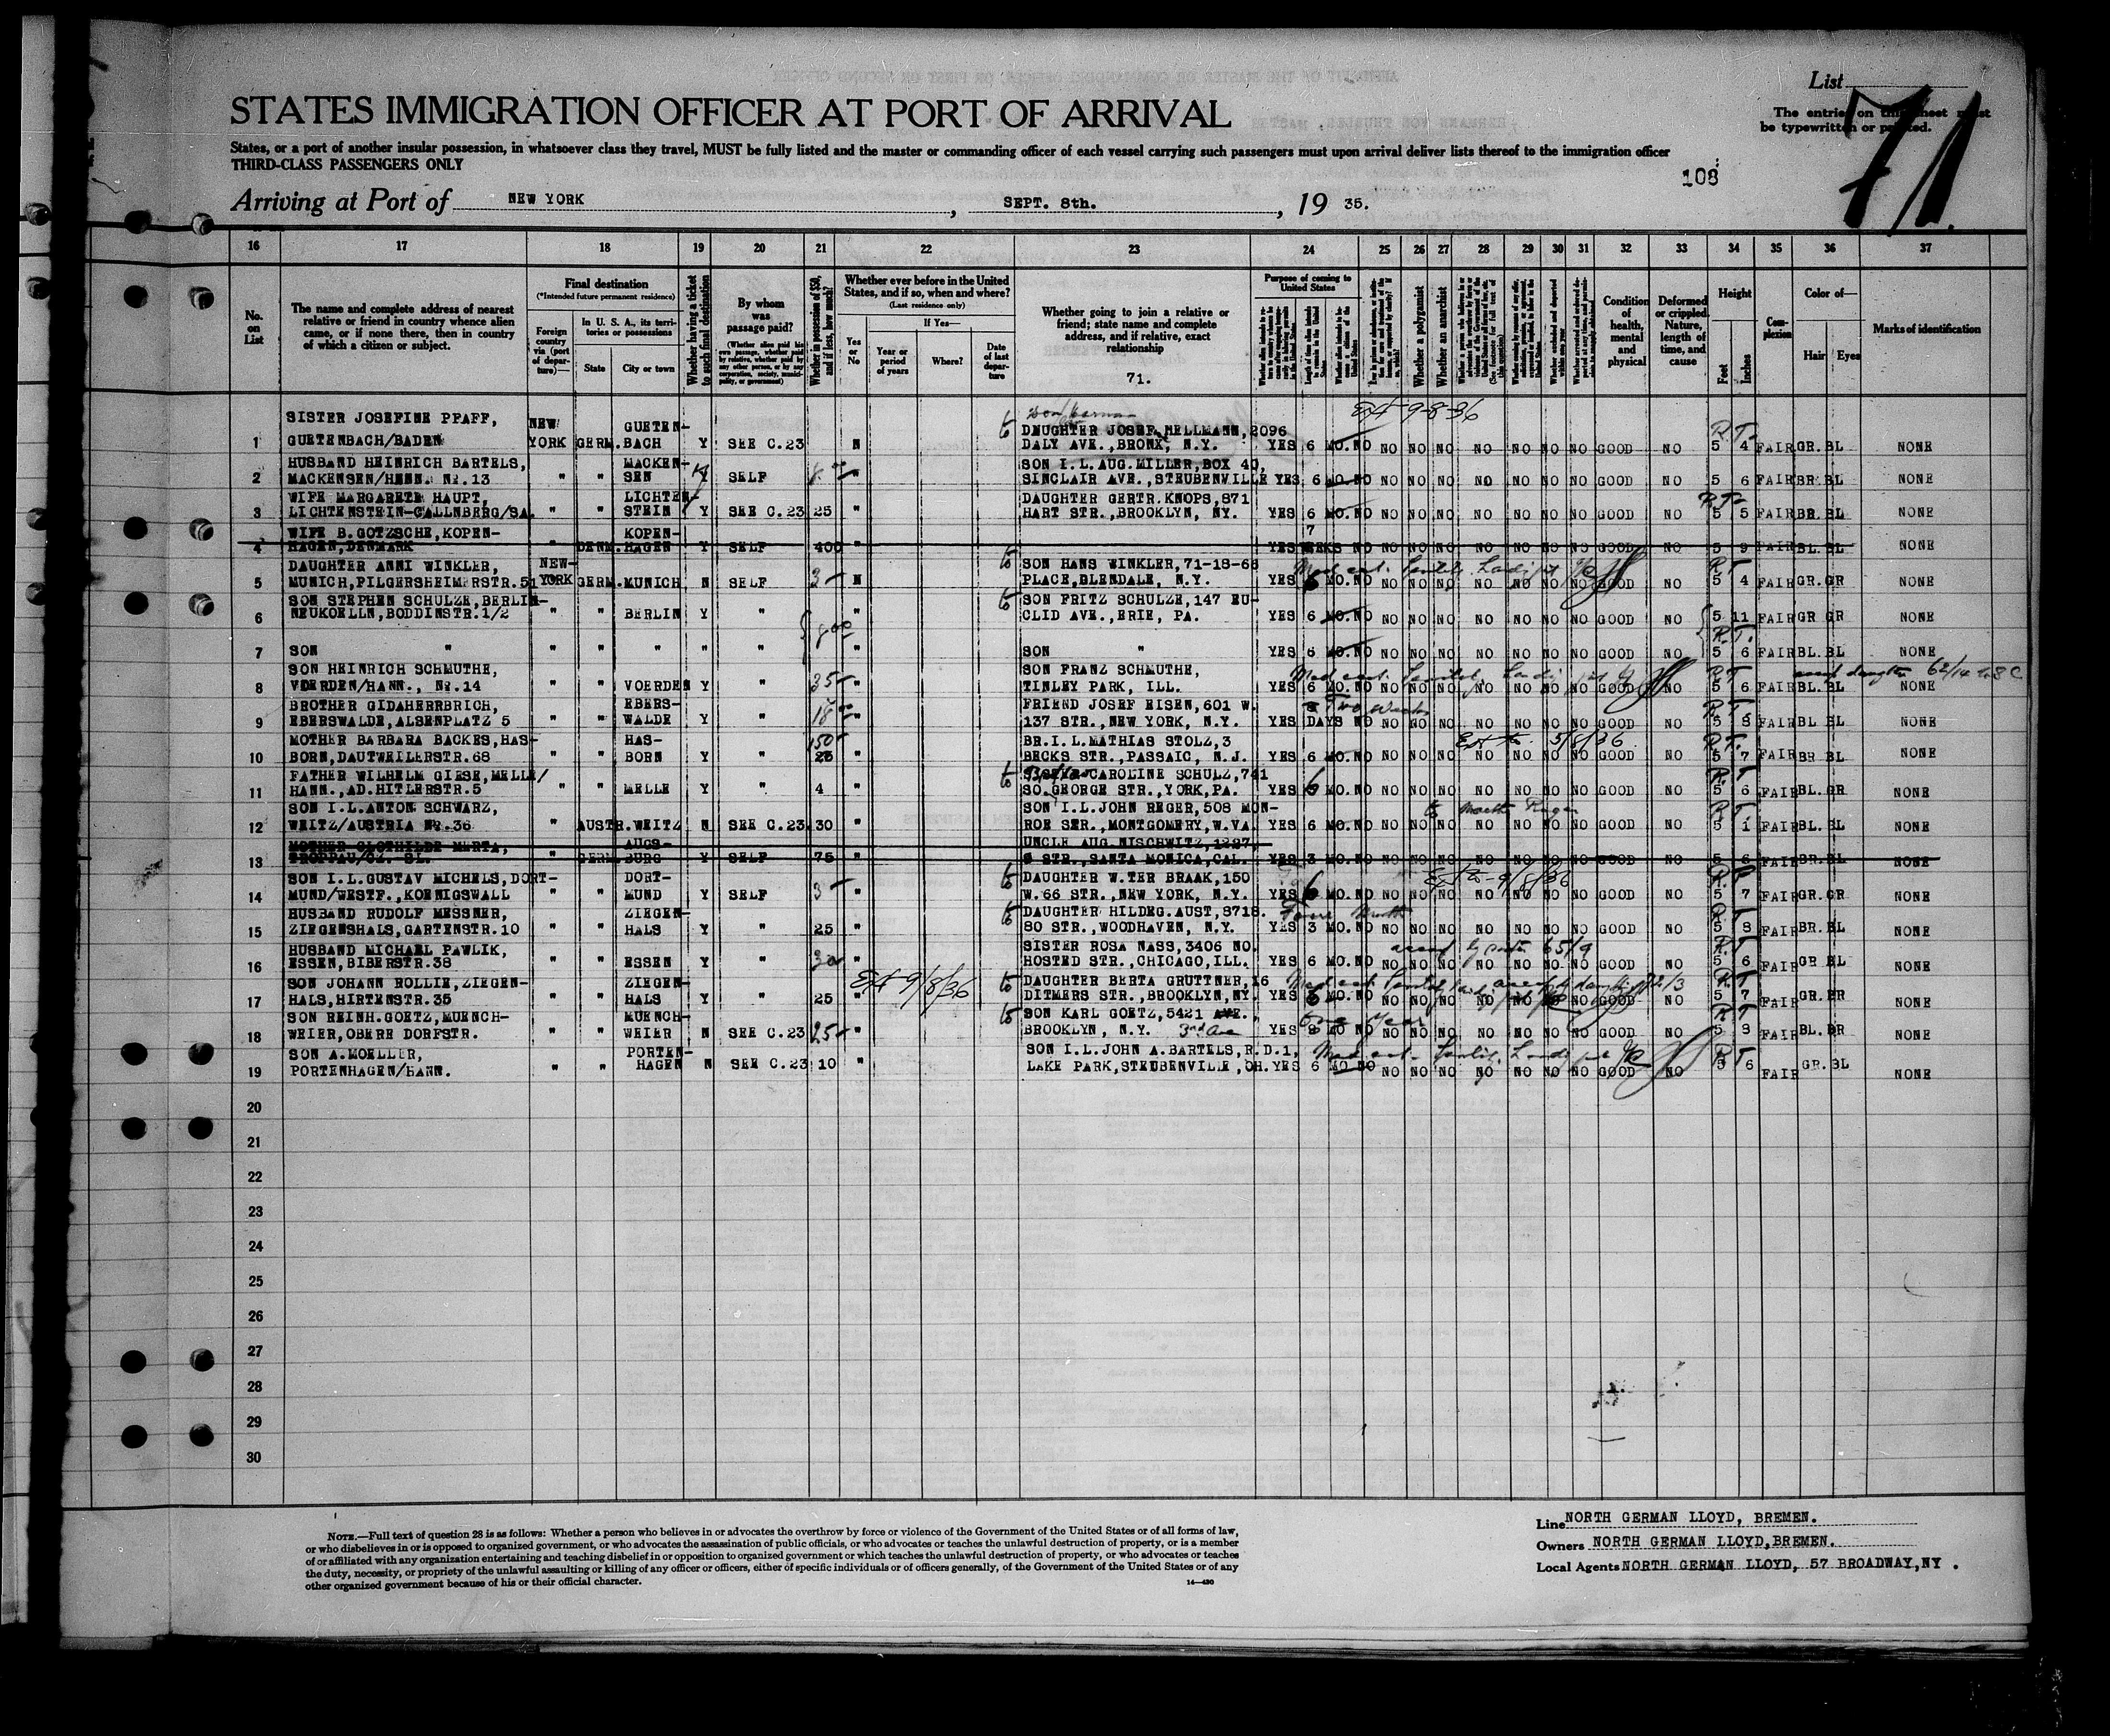 List
STATES IMMIGRATION OFFICER AT PORT OF ARRIVAL
The entries on this sheet must
be typewritten or printed.
71.
States, or a port of another insular possession, in whatsoever class they travel, MUST be fully listed and the master or commanding officer of each vessel carrying such passengers must upon arrival deliver lists thereof to the immigration officer
THIRD-CLASS PASSENGERS ONLY
108
Arriving at Port of NEW YORK , SEPT. 8th. , 19 35.
16 17 18 19 20 21 22 23 24 25 26 27 28 29 30 31 32 33 34 35 36 37
No. on List
The name and complete address of nearest relative or friend in country whence alien came, or if none there, then in country of which a citizen or subject.
Final destination
(*Intended future permanent residence)
Foreign country via (port of departure)—
In U. S. A., its territories or possessions
State
City or town
Whether having a ticket to such final destination
By whom was passage paid?
(Whether alien paid his own passage, whether paid by relative, whether paid by any other person, or by any corporation, society, municipality, or government)
Whether in possession of $50, and if less, how much?
Whether ever before in the United States, and if so, when and where?
(Last residence only)
Yes or No
If Yes—
Year or period of years
Where?
Date of last departure
Whether going to join a relative or friend; state name and complete address, and if relative, exact relationship
71.
Purpose of coming to United States
Whether a polygamist
Whether an anarchist
Condition of health, mental and physical
Deformed or crippled. Nature, length of time, and cause
Height
Feet
Inches
Complexion
Color of—
Hair
Eyes
Marks of identification
Ext 9-8-36
SISTER JOSEFINE PFAFF, NEW GUETEN-
1 GUETENBACH/BADEN YORK GERM. BACH Y SEE C.23 N DAUGHTER JOSEF MELLMANN, 2096
DALY AVE., BRONX, N.Y. YES 6 MO. NO NO NO NO NO NO NO NO GOOD NO 5 4 FAIR GR. BL NONE
HUSBAND HEINRICH BARTELS, MACKEN- SON I.L. AUG. MILLER, BOX 40,
2 MACKENSEN/HENN. Nr. 13 " " SEN Y SELF " SINCLAIR AVE., STEUBENVILLE YES 6 MO. NO NO NO NO NO NO NO NO GOOD NO 5 6 FAIR BR. BL NONE
WIFE MARGARETE HAUPT, LICHTEN- DAUGHTER GERTR. KNOPS, 871 R.T.
3 LICHTENSTEIN-CALLNBERG/SA. " " STEIN Y SEE C.23 25 " HART STR., BROOKLYN, NY. YES 6 MO. NO NO NO NO NO NO NO NO GOOD NO 5 5 FAIR BR. BL NONE
WIFE B. GOTZSCHE, KOPEN- KOPEN- 7
4 HAGEN, DENMARK DENM. HAGEN Y SELF 400 " YES WEEKS NO NO NO NO NO NO NO NO GOOD NO 5 9 FAIR BL. BL NONE
DAUGHTER ANNI WINKLER, NEW- SON HANS WINKLER, 71-18-66 R.T.
5 MUNICH, PILGERSHEIMERSTR. 51 YORK GERM. MUNICH N SELF 3- N PLACE, BLENDALE, N.Y. YES 6 MO. NO NO NO NO NO NO NO NO GOOD NO 5 4 FAIR GR. GR NONE
SON STEPHEN SCHULZE, BERLIN- SON FRITZ SCHULZE, 147 EU-
6 NEUKOELLN, BODDINSTR. 1/2 " " BERLIN Y " " CLID AVE., ERIE, PA. YES 6 MO. NO NO NO NO NO NO NO NO GOOD NO 5 11 FAIR GR GR NONE
7 SON " " " " " " " SON " YES 6 MO. NO NO NO NO NO NO NO NO GOOD NO R.T. 5 6 FAIR BL. BL NONE
SON HEINRICH SCHMUTHE, SON FRANZ SCHMUTHE, R.T.
8 VOERDEN/HANN., Nr. 14 " " VOERDEN Y " 35- " TINLEY PARK, ILL. YES 6 MO. NO NO NO NO NO NO NO NO GOOD NO 5 6 FAIR BL. BL NONE
BROTHER GIDAHERRBRICH, EBERS- FRIEND JOSEF EISEN, 601 W. 8 Two Weeks R.T.
9 EBERSWALDE, ALSENPLATZ 5 " " WALDE Y " 18 " 137 STR., NEW YORK, N.Y. YES DAYS NO NO NO NO NO NO NO NO GOOD NO 5 8 FAIR BL BL NONE
MOTHER BARBARA BACKES, HAS- HAS- 150 BR. I.L. MATHIAS STOLZ, 3 Ext to 5/8/36 R.T.
10 BORN, DAUTWEILERSTR. 68 " " BORN Y " 25 " BECKS STR., PASSAIC, N.J. YES 6 MO. NO NO NO NO NO NO NO NO GOOD NO 5 7 FAIR BR BL NONE
FATHER WILHELM GIESE, MELLE/ SISTER CAROLINE SCHULZ, 741 R.T.
11 HANN., AD. HITLERSTR. 5 " " MELLE Y " 4 " SO. GEORGE STR., YORK, PA. YES 6 MO. NO NO NO NO NO NO NO NO GOOD NO 5 6 FAIR BL. GR NONE
SON I.L. ANTON SCHWARZ, SON I.L. JOHN REGER, 508 MON- R.T.
12 WEITZ/AUSTRIA Nr. 36 " AUSTR. WEITZ N SEE C.23 30 " ROE STR., MONTGOMERY, W.VA. YES 6 MO. NO NO NO NO NO NO NO NO GOOD NO 5 1 FAIR BL. BL NONE
MOTHER CLOTHILDE MERTA, AUGS- UNCLE AUG. NISCHWITZ, 1227,
13 TROPPAU/CZ. SL. " GERM. BURG Y SELF 75 " STR., SANTA MONICA, CAL. YES 3 MO. NO NO NO NO NO NO NO NO GOOD NO 5 6 FAIR BR. BL NONE
SON I.L. GUSTAV MICHELS, DORT- DORT- DAUGHTER W. TER BRAAK, 150 Ext to 9/8/36 R.T.
14 MUND/WESTF., KOENIGSWALL " " MUND Y SELF 3- " W. 66 STR., NEW YORK, N.Y. YES 6 MO. NO NO NO NO NO NO NO NO GOOD NO 5 7 FAIR GR. GR NONE
HUSBAND RUDOLF MESSNER, ZIEGEN- DAUGHTER HILDEG. AUST, 8718. Four Month R.T.
15 ZIEGENSHALS, GARTENSTR. 10 " " HALS Y " 25 " 80 STR., WOODHAVEN, N.Y. YES 3 MO. NO NO NO NO NO NO NO NO GOOD NO 5 8 FAIR BR. BL NONE
HUSBAND MICHAEL PAWLIK, SISTER ROSA NASS, 3406 NO. R.T.
16 ESSEN, BIBERSTR. 38 " " ESSEN Y " 30 " HOSTED STR., CHICAGO, ILL. YES 6 MO. NO NO NO NO NO NO NO NO GOOD NO 5 6 FAIR GR BL NONE
SON JOHANN ROLLIE, ZIEGEN- ZIEGEN- Ext 9/8/36 DAUGHTER BERTA GRUTTNER, 16 R.T.
17 HALS, HIRTENSTR. 35 " " HALS Y " 25 " DITMERS STR., BROOKLYN, NY. YES 6 MO. NO NO NO NO NO NO NO NO GOOD NO 5 7 FAIR GR. BR NONE
SON REINH. GOETZ, MUENCH- MUENCH- SON KARL GOETZ, 5421 AVE., One Year R.T.
18 WEIER, OBERE DORFSTR. " " WEIER N SEE C.23 25- " BROOKLYN, N.Y. 3rd Ave YES MO NO NO NO NO NO NO NO NO GOOD NO 5 3 FAIR BL. BR NONE
SON A. MOELLER, PORTEN- SON I.L. JOHN A. BARTELS, R.D.1, R.T.
19 PORTENHAGEN/HANN. " " HAGEN N SEE C.23 10 " LAKE PARK, STEUBENVILLE, OH. YES 6 MO NO NO NO NO NO NO NO NO GOOD NO 5 6 FAIR GR. BL NONE
20
21
22
23
24
25
26
27
28
29
30
NOTE.—Full text of question 28 is as follows: Whether a person who believes in or advocates the overthrow by force or violence of the Government of the United States or of all forms of law,
or who disbelieves in or is opposed to organized government, or who advocates the assassination of public officials, or who advocates or teaches the unlawful destruction of property, or is a member
of or affiliated with any organization entertaining and teaching disbelief in or opposition to organized government or which teaches the unlawful destruction of property, or who advocates or teaches
the duty, necessity, or propriety of the unlawful assaulting or killing of any officer or officers, either of specific individuals or of officers generally, of the Government of the United States or of any
other organized government because of his or their official character.
14—430
Line NORTH GERMAN LLOYD, BREMEN.
Owners NORTH GERMAN LLOYD, BREMEN.
Local Agents NORTH GERMAN LLOYD, 57 BROADWAY, NY .